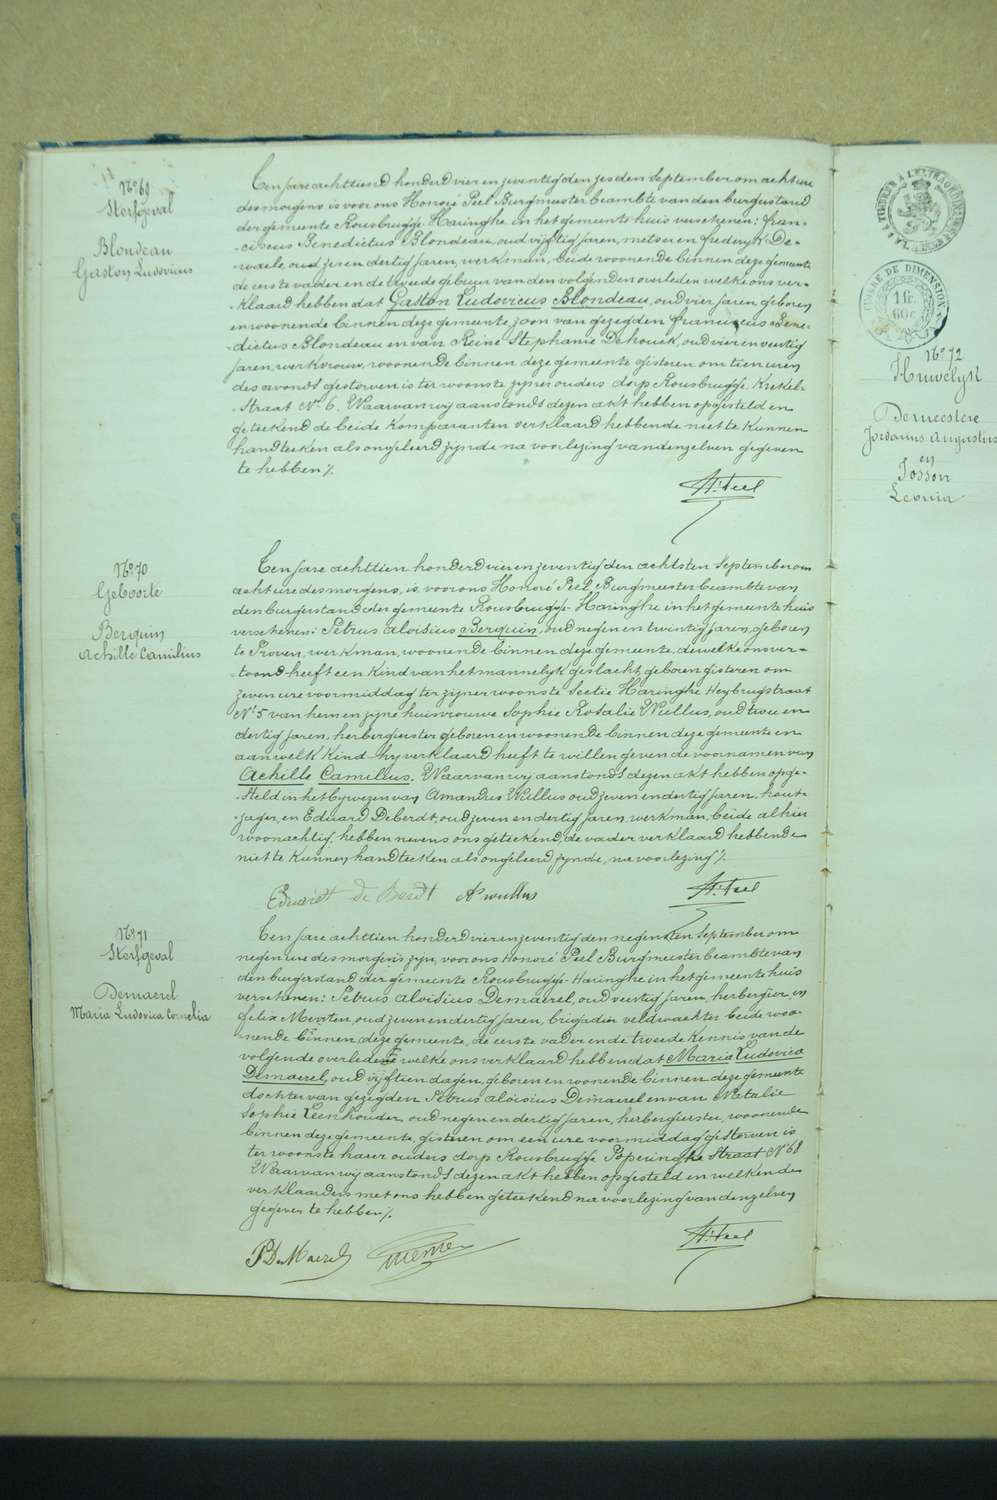 No 69
Sterfgeval
Blondeau
Gaston Ludovicus
Ten jare achttiend honderd vier en zeventig den zesden September om acht ure
des morgens is voor ons Honoré Peel Burgmeester beambte van den burgerstand
der gemeente Rousbrugge-Haringhe in het gemeente huis verschenen: Fran-
-ciscus Benedictus Blondeau, oud vijftig jaren, metser en Frederyk De-
-waele, oud zes en dertig jaren, werkman, beide woonende binnen deze gemeente
de eerste vader en de tweede gebuur van den volgenden overleden welke ons ver-
-klaard hebben dat Gaston Ludovicus Blondeau, oud vier jaren geboren
en woonende binnen deze gemeente zoon van gezegden Franciscus Bene-
-dictus Blondeau en van Reine Stephanie Dehouck, oud vier en veertig
jaren, werkvrouw, woonende binnen deze gemeente gisteren om tien uren
des avonds gestorven is ter woonste zyner ouders dorp Rousbrugge Krekel-
-Straat No 6. Waarvan wy aanstonds dezen akt hebben opgesteld en
geteekend de beide komparanten verklaard hebbende niet te kunnen
handteeken als ongeleerd zynde na voorlezing van denzelven gegeven
te hebben %.
H. Peel
No 70
Geboorte
Berquin
Achille Camilius
Ten jare achttien honderd vier en zeventig den achtsten September om
acht ure des morgens, is voor ons Honoré Peel Burgmeester beambte van
den burgerstand der gemeente Rousbrugge-Haringhe in het gemeente huis
verschenen: Petrus Aloisius Berquin, oud negen en twintig jaren, geboren
te Proven, werkman, woonende binnen deze gemeente, dewelke ons ver-
-toond heeft een kind van het mannelyk geslacht, geboren gisteren om
zeven ure voormiddag ter zyner woonste Sectie Haringhe Heybrugstraat
No 5 van hem en zyne huisvrouwe Sophie Rosalie Wullus, oud twee en
dertig jaren, herbergierster geboren en woonende binnen deze gemeente en
aan welk kind hy verklaard heeft te willen geven de voornamen van
Achille Camillus. Waarvan wy aanstonds dezen akt hebben opge-
-steld in het bywezen van Amandus Wullus oud zeven en dertig jaren, hout-
-zager, en Eduard Deberdt, oud zeven en dertig jaren, werkman, beide alhier
woonachtig, hebben nevens ons geteekend, de vader verklaard hebbende
niet te kunnen handteeken als ongeleerd zynde, na voorlezing %.
Eduardt de Berdt A. wullus H. Peel
No 71
Sterfgeval
Demaerel
Maria Ludovica Cornelia
Ten jare achttien honderd vier en zeventig den negensten September om
negen ure des morgens zyn, voor ons Honoré Peel Burgmeester beambte van
den burgerstand der gemeente Rousbrugge-Haringhe in het gemeente huis
verschenen: Petrus Aloisius Demaerel, oud veertig jaren, herbergier, en
Felix Mersten, oud zeven en dertig jaren, brigadier veldwachter beide woo-
-nende binnen deze gemeente, de eerste vader en de tweede kennis van de
volgende overledene welke ons verklaard hebben dat Maria Ludovica
Demaerel, oud vijftien dagen, geboren en woonende binnen deze gemeente
dochter van gezegden Petrus Aloisius Demaerel en van Natalie
Sophie Leenhouder, oud negen en dertig jaren, herbergierster, woonende
binnen deze gemeente, gisteren om een ure voormiddag gestorven is
ter woonste harer ouders dorp Rousbrugge Poperinghe Straat No 68
Waarvan wy aanstonds dezen akt hebben opgesteld en welken de
verklaarders met ons hebben geteekend na voorlezing van denzelven
gegeven te hebben %.
P DeMaerel H. Peel
TIMBRE DE DIMENSION
1 fr.
60 c.
No 72
Huwelyk
Demeestere
Jordanus Augustus
en
Josson
Leonia